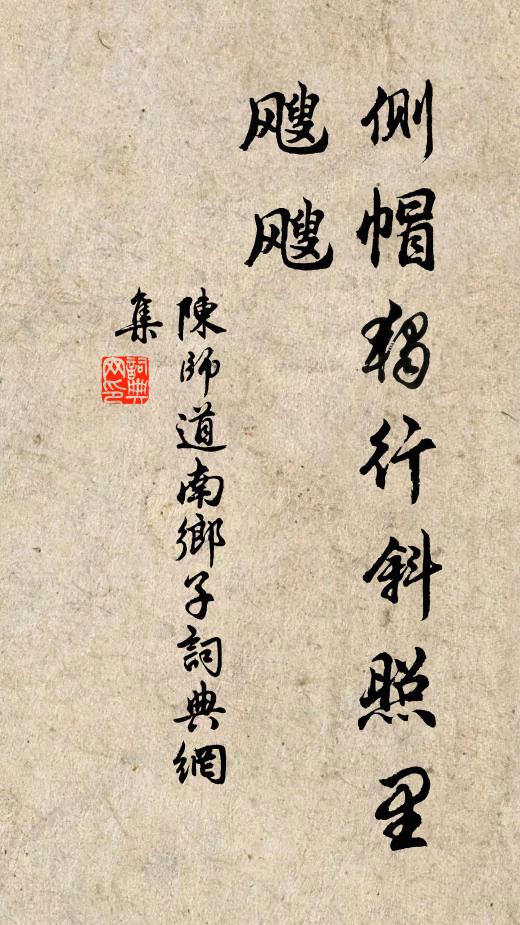 側帽独行斜照里
飕飕
陳師道南鄉子詞典網
集
詞典
网印